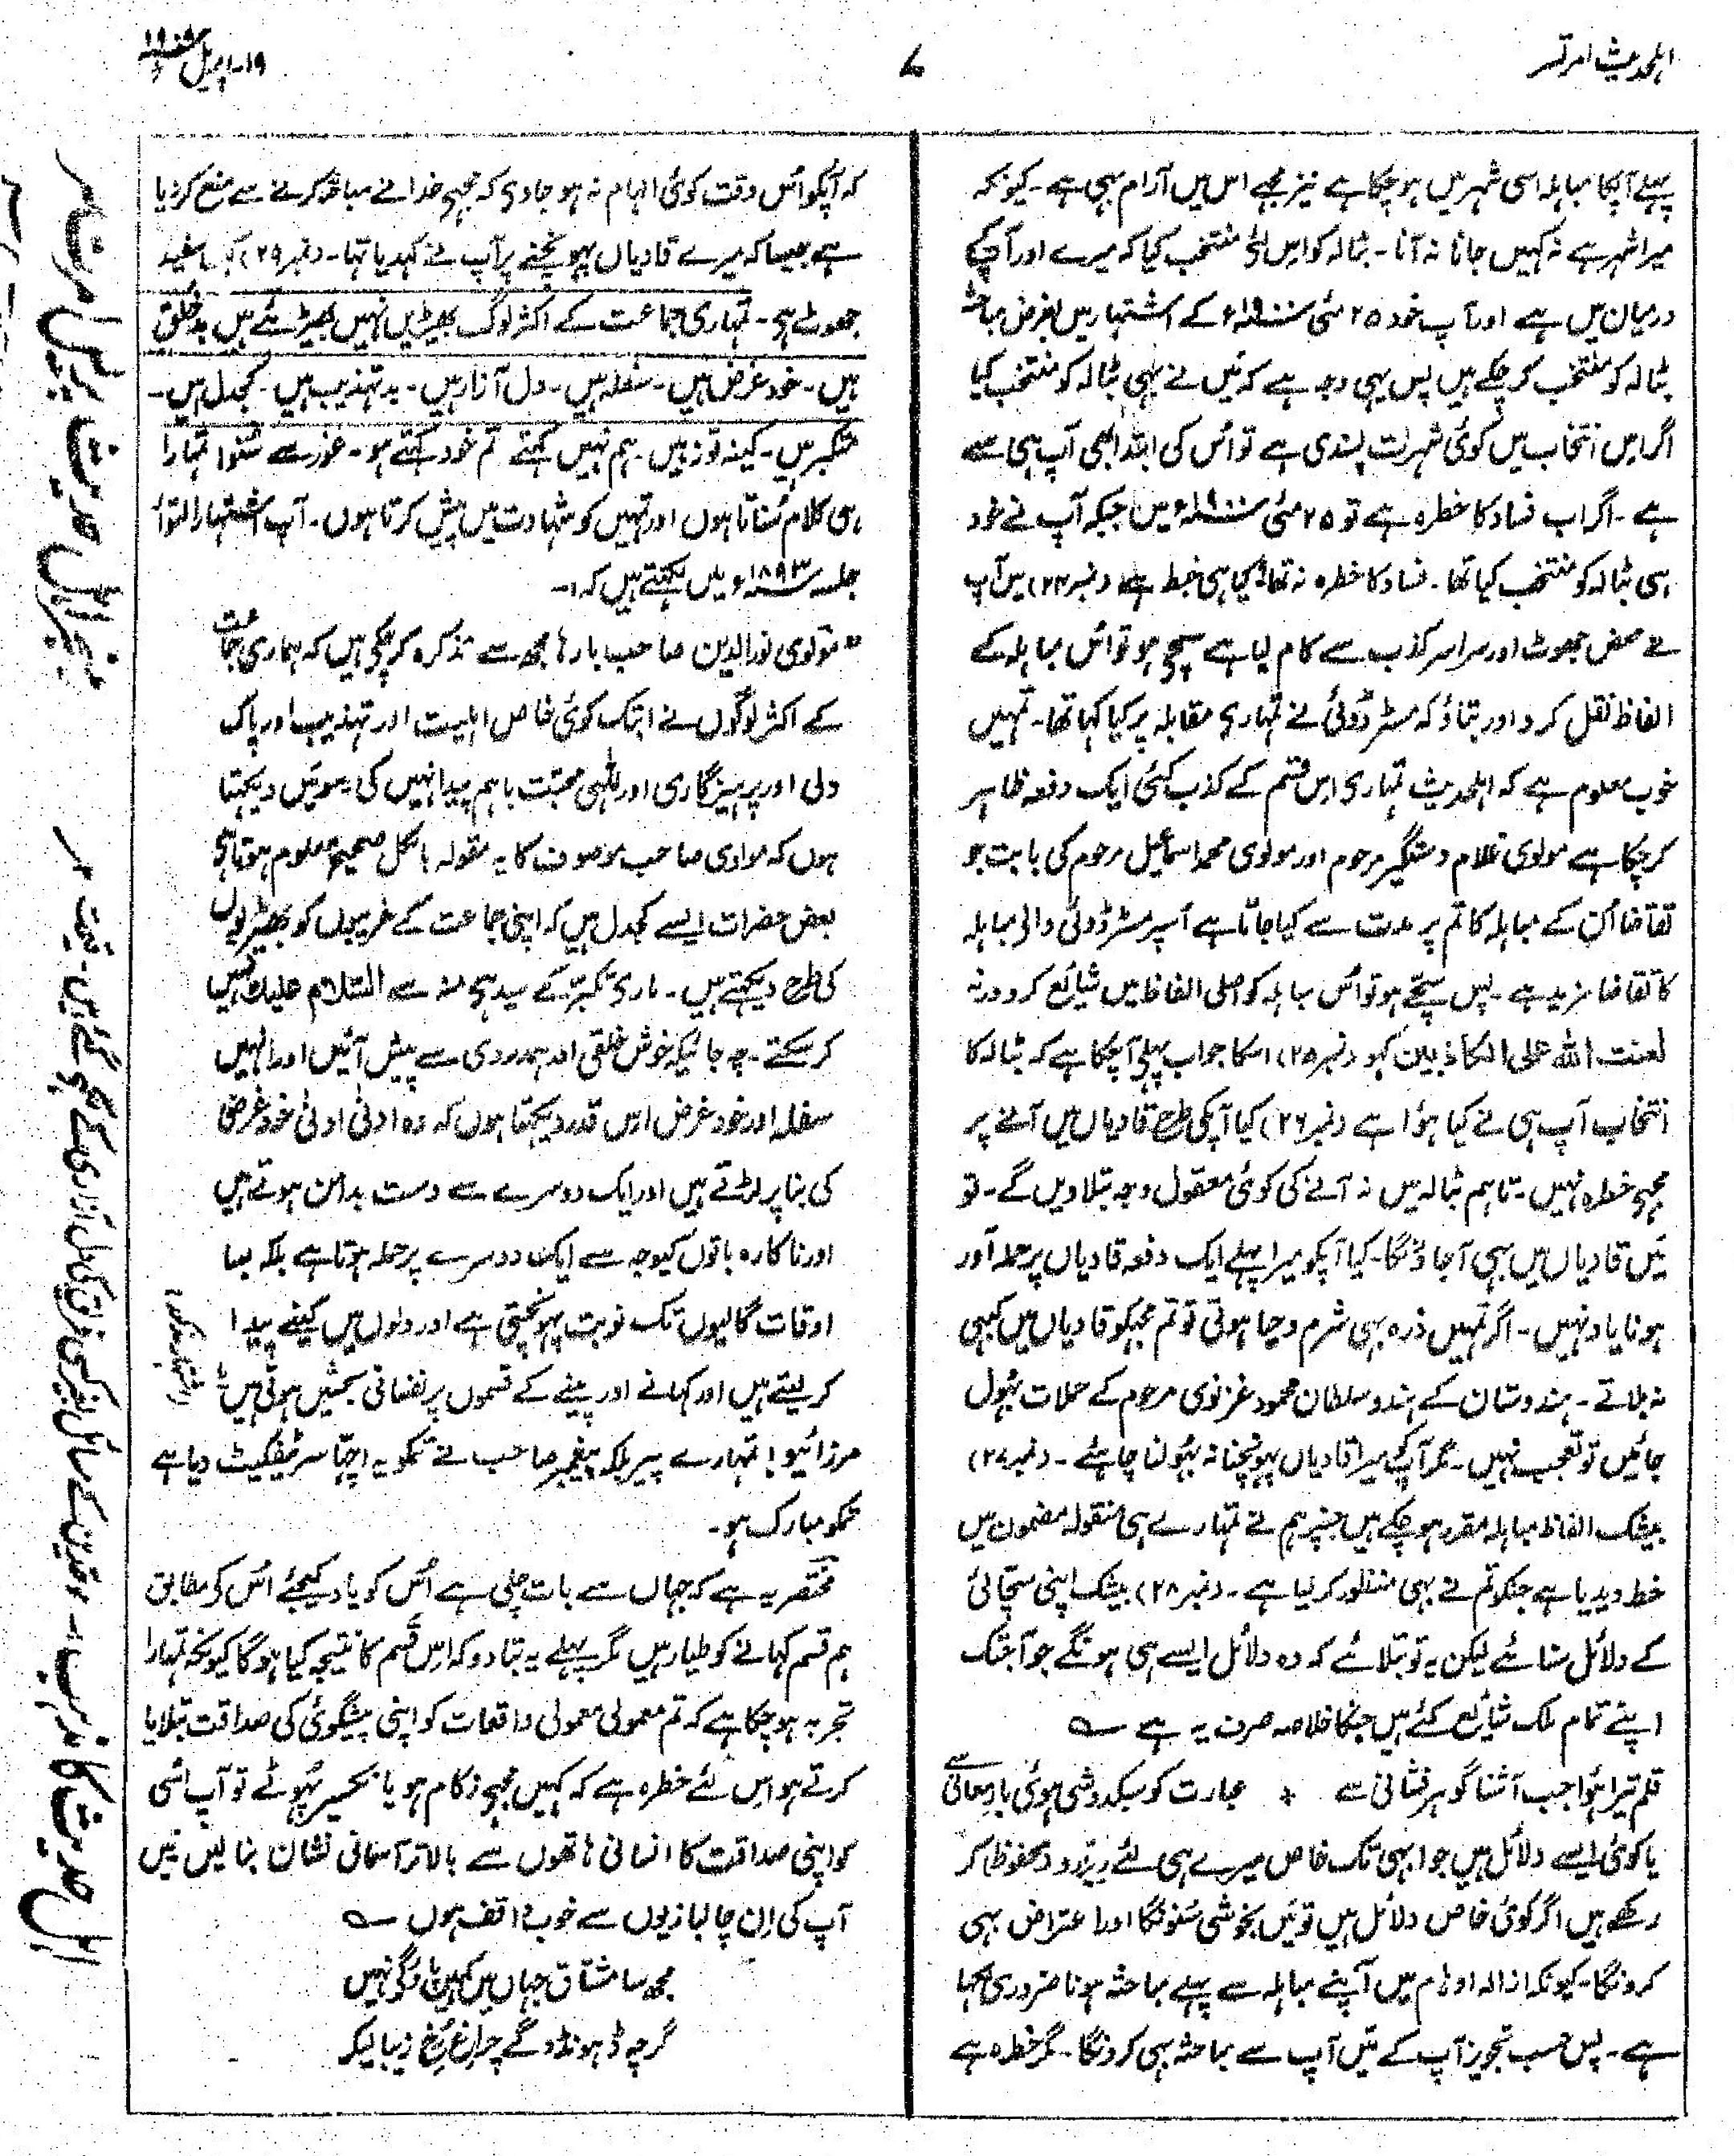 اہلحدیث امرتسر
۷
۱۹۔ اپریل ۱۹۰۷ء
پہلے آپکا مباہلہ اسی شہر میں ہو چکا ہے نیز مجھے اس میں آرام بہی ہے۔ کیونکہ
میرا شہر ہے نہ کہیں جانا نہ آنا۔ بٹالہ کو اس لئے منتخب کیا کہ میرے اور آپکے
درمیان میں ہے اور آپ خود ۲۵ مئی سنہ ۱۹۰۰ء کے اشتہار میں بغرض مباحثہ
بٹالہ کو منتخب کر چکے ہیں پس یہی وجہ ہے کہ میں نے بہی بٹالہ کو منتخب کیا
اگر اس انتخاب میں کوئی شہرت پسندی ہے تو اُس کی ابتدا بھی آپ ہی سے
ہے۔ اگر اب فساد کا خطرہ ہے تو ۲۵ مئی سنہ ۱۹۰۰ء میں جبکہ آپ نے خود
ہی بٹالہ کو منتخب کیا تھا۔ فساد کا خطرہ نہ تھا کیا ہی خبط ہے (نمبر ۲۴) میں آپ
نے محض جھوٹ اور سراسر کذب سے کام لیا ہے سچے ہو تو اُس مباہلہ کے
الفاظ نقل کرو اور بتاؤ کہ مسٹر ڈوئی نے تمہاری مقابلہ پر کیا کہا تھا۔ تمہیں
خوب معلوم ہے کہ اہلحدیث تمہاری اس قسم کے کذب کئی ایک دفعہ ظاہر
کر چکا ہے مولوی غلام دستگیر مرحوم اور مولوی محمد اسماعیل مرحوم کی بابت جو
تقاضا اُن کے مباہلہ کا تم پر مدت سے کیا جاتا ہے اسپر مسٹر ڈوئی والی مباہلہ
کا تقاضا مزید ہے۔ پس سچے ہو تو اُس مباہلہ کو اصلی الفاظ میں شائع کرو ورنہ
لعنت اللہ علی الکاذبین کہو (نمبر ۲۵) اسکا جواب پہلے آچکا ہے کہ بٹالہ کا
انتخاب آپ ہی نے کیا ہوا ہے (نمبر ۲۶) کیا آپکی طرح قادیاں میں آنے پر
مجہی خطرہ نہیں۔ تاہم بٹالہ میں نہ آنے کی کوئی معقول وجہ بتلا دیں گے۔ تو
میں قادیاں میں بہی آجاؤنگا۔ کیا آپکو میرا پہلے ایک دفعہ قادیاں پر حملہ آور
ہونا یاد نہیں۔ اگر تمہیں ذرہ بہی شرم و حیا ہوتی تو تم مجہکو قادیاں میں کبہی
نہ بلاتے۔ ہندوستان کے ہندو سلطان محمود غزنوی مرحوم کے حملات بہول
جائیں تو تعجب نہیں۔ مگر آپکو میرا قادیاں پہونچنا نہ بہولنا چاہئے۔ (نمبر ۲۷)
بیشک الفاظ مباہلہ مقرر ہو چکے ہیں جنپر ہم نے تمہارے ہی منقولہ مضمون میں
خط دیدیا ہے جنکو تم نے بہی منظور کر لیا ہے۔ (نمبر ۲۸) بیشک اپنی سچائی
کے دلائل سنائے لیکن یہ تو بتلائے کہ وہ دلائل ایسے ہی ہونگے جو آجتک
اپنے تمام ملک شائع کئے ہیں جنکا خلاصہ صرف یہ ہے ؎
قلم تیرا ہوا جب آشنا گوہر فشانی سے ٭ عبارت کو سبکدوشی ہوئی بار معانی سے
یا کوئی ایسے دلائل ہیں جو ابہی تک خاص میرے ہی لئے ریزرو (محفوظ) کر
رکھے ہیں اگر کوئی خاص دلائل ہیں تو میں بخوشی سنونگا اور اعتراض بہی
کرونگا۔ کیونکہ ازالہ اوہام میں آپنے مباہلہ سے پہلے مباحثہ ہونا ضروری لکہا
ہے۔ پس حسب تجویز آپ کے میں آپ سے مباحثہ بہی کرونگا۔ مگر خطرہ ہے
کہ آپکو اُس وقت کوئی الہام نہ ہو جاوی کہ مجہی خدا نے مباحثہ کرنے سے منع کر دیا
ہے جیسا کہ میرے قادیاں پہونچنے پر آپ نے کہدیا تہا۔ (نمبر ۲۹) کیا سفید
جھوٹ ہے۔ تمہاری جماعت کے اکثر لوگ بھیڑیں نہیں بھیڑئے ہیں بدخُلق
ہیں۔ خود غرض ہیں۔ سفلہ ہیں۔ دل آزار ہیں۔ بد تہذیب ہیں۔ کجدل ہیں۔
متکبر ہیں۔ کینہ توز ہیں۔ ہم نہیں کہتے تم خود کہتے ہو۔ غور سے سُنو! تمہارا
ہی کلام سُناتا ہوں اور تمہیں کو شہادت میں پیش کرتا ہوں۔ آپ اشتہار التوائے
جلسہ سنہ ۱۸۹۳ء میں لکہتے ہیں کہ:۔
"مولوی نور الدین صاحب بارہا مجھ سے تذکرہ کر چکے ہیں کہ ہماری جماعت
کے اکثر لوگوں نے ابتک کوئی خاص اہلیت اور تہذیب اور پاک
دلی اور پرہیزگاری اور للّٰہی محبت باہم پیدا نہیں کی۔ سو میں دیکہتا
ہوں کہ مولوی صاحب موصوف کا یہ مقولہ بالکل صحیح معلوم ہوتا ہے
بعض حضرات ایسے کجدل ہیں کہ اپنی جماعت کے غریبوں کو بھیڑیوں
کی طرح دیکہتے ہیں۔ مارے تکبر کے سیدہے منہ سے السّلام علیک نہیں
کر سکتے۔ چہ جائیکہ خوش خلقی اور ہمدردی سے پیش آئیں اور انہیں
سفلہ اور خود غرض اس قدر دیکہتا ہوں کہ وہ ادنیٰ ادنیٰ خود غرضی
کی بنا پر لڑتے ہیں اور ایک دوسرے سے دست بدامن ہوتے ہیں
اور ناکارہ باتوں کیوجہ سے ایک دوسرے پر حملہ ہوتا ہے بلکہ بسا
اوقات گالیوں تک نوبت پہونچتی ہے اور دلوں میں کینے پیدا
کر لیتے ہیں اور کہانے اور پینے کے قسموں پر نفسانی بحثیں ہوتی ہیں"
مرزائیو! تمہارے پیر بلکہ پیغمبر صاحب نے تمکو یہ اچہا سرٹیفکیٹ دیا ہے
تمکو مبارک ہو۔
مختصر یہ ہے کہ جہاں سے بات چلی ہے اُس کو یاد کیجئے اُس کو مطابق
ہم قسم کہانے کو طیار ہیں مگر پہلے یہ بتا دو کہ اس قسم کا نتیجہ کیا ہوگا کیونکہ تمہارا
تجربہ ہو چکا ہے کہ تم معمولی معمولی واقعات کو اپنی پیشگوئی کی صداقت بتلایا
کرتے ہو اس لئے خطرہ ہے کہ کہیں مجہے زکام ہو یا نکسیر پُہوٹے تو آپ اسی
کو اپنی صداقت کا انسانی ہاتھوں سے بالاتر آسمانی نشان بنا لیں میں
آپ کی اِن چالبازیوں سے خوب واقف ہوں ؎
مجھ سا مشتاق جہاں میں کہیں پاؤگے نہیں
گرچہ ڈہونڈو گے چراغِ رُخِ زیبا لیکر
اہل حدیث کا مذہب۔
منیجر اہل حدیث پریس امرتسر